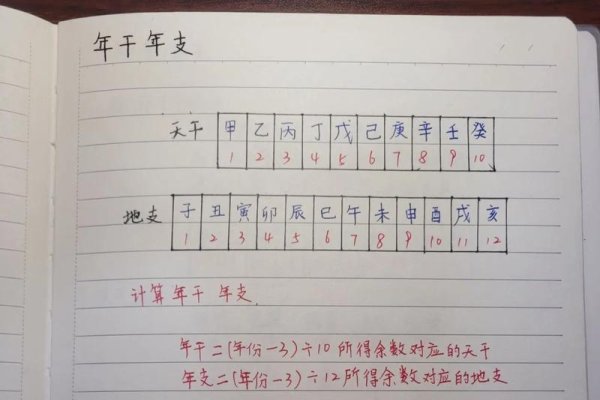 年干年支
天干 甲 乙 丙 丁 戊 己 庚 辛 壬 癸
1 2 3 4 5 6 7 8 9 10
地支 子 丑 寅 卯 辰 巳 午 未 申 酉 戌 亥
1 2 3 4 5 6 7 8 9 10 11 12
计算年干 年支.
年干=(年份-3)÷10所得余数对应的天干
年支=(年份-3)÷12所得余数对应的地支